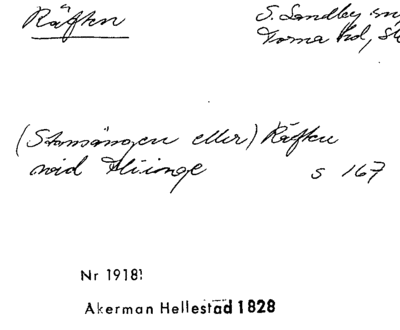 Räften S. Sandby sn,
Torna hd,
(Stomängen eller) Räften
wid s 167
Nr 1918
Akerman Hellestad 1828